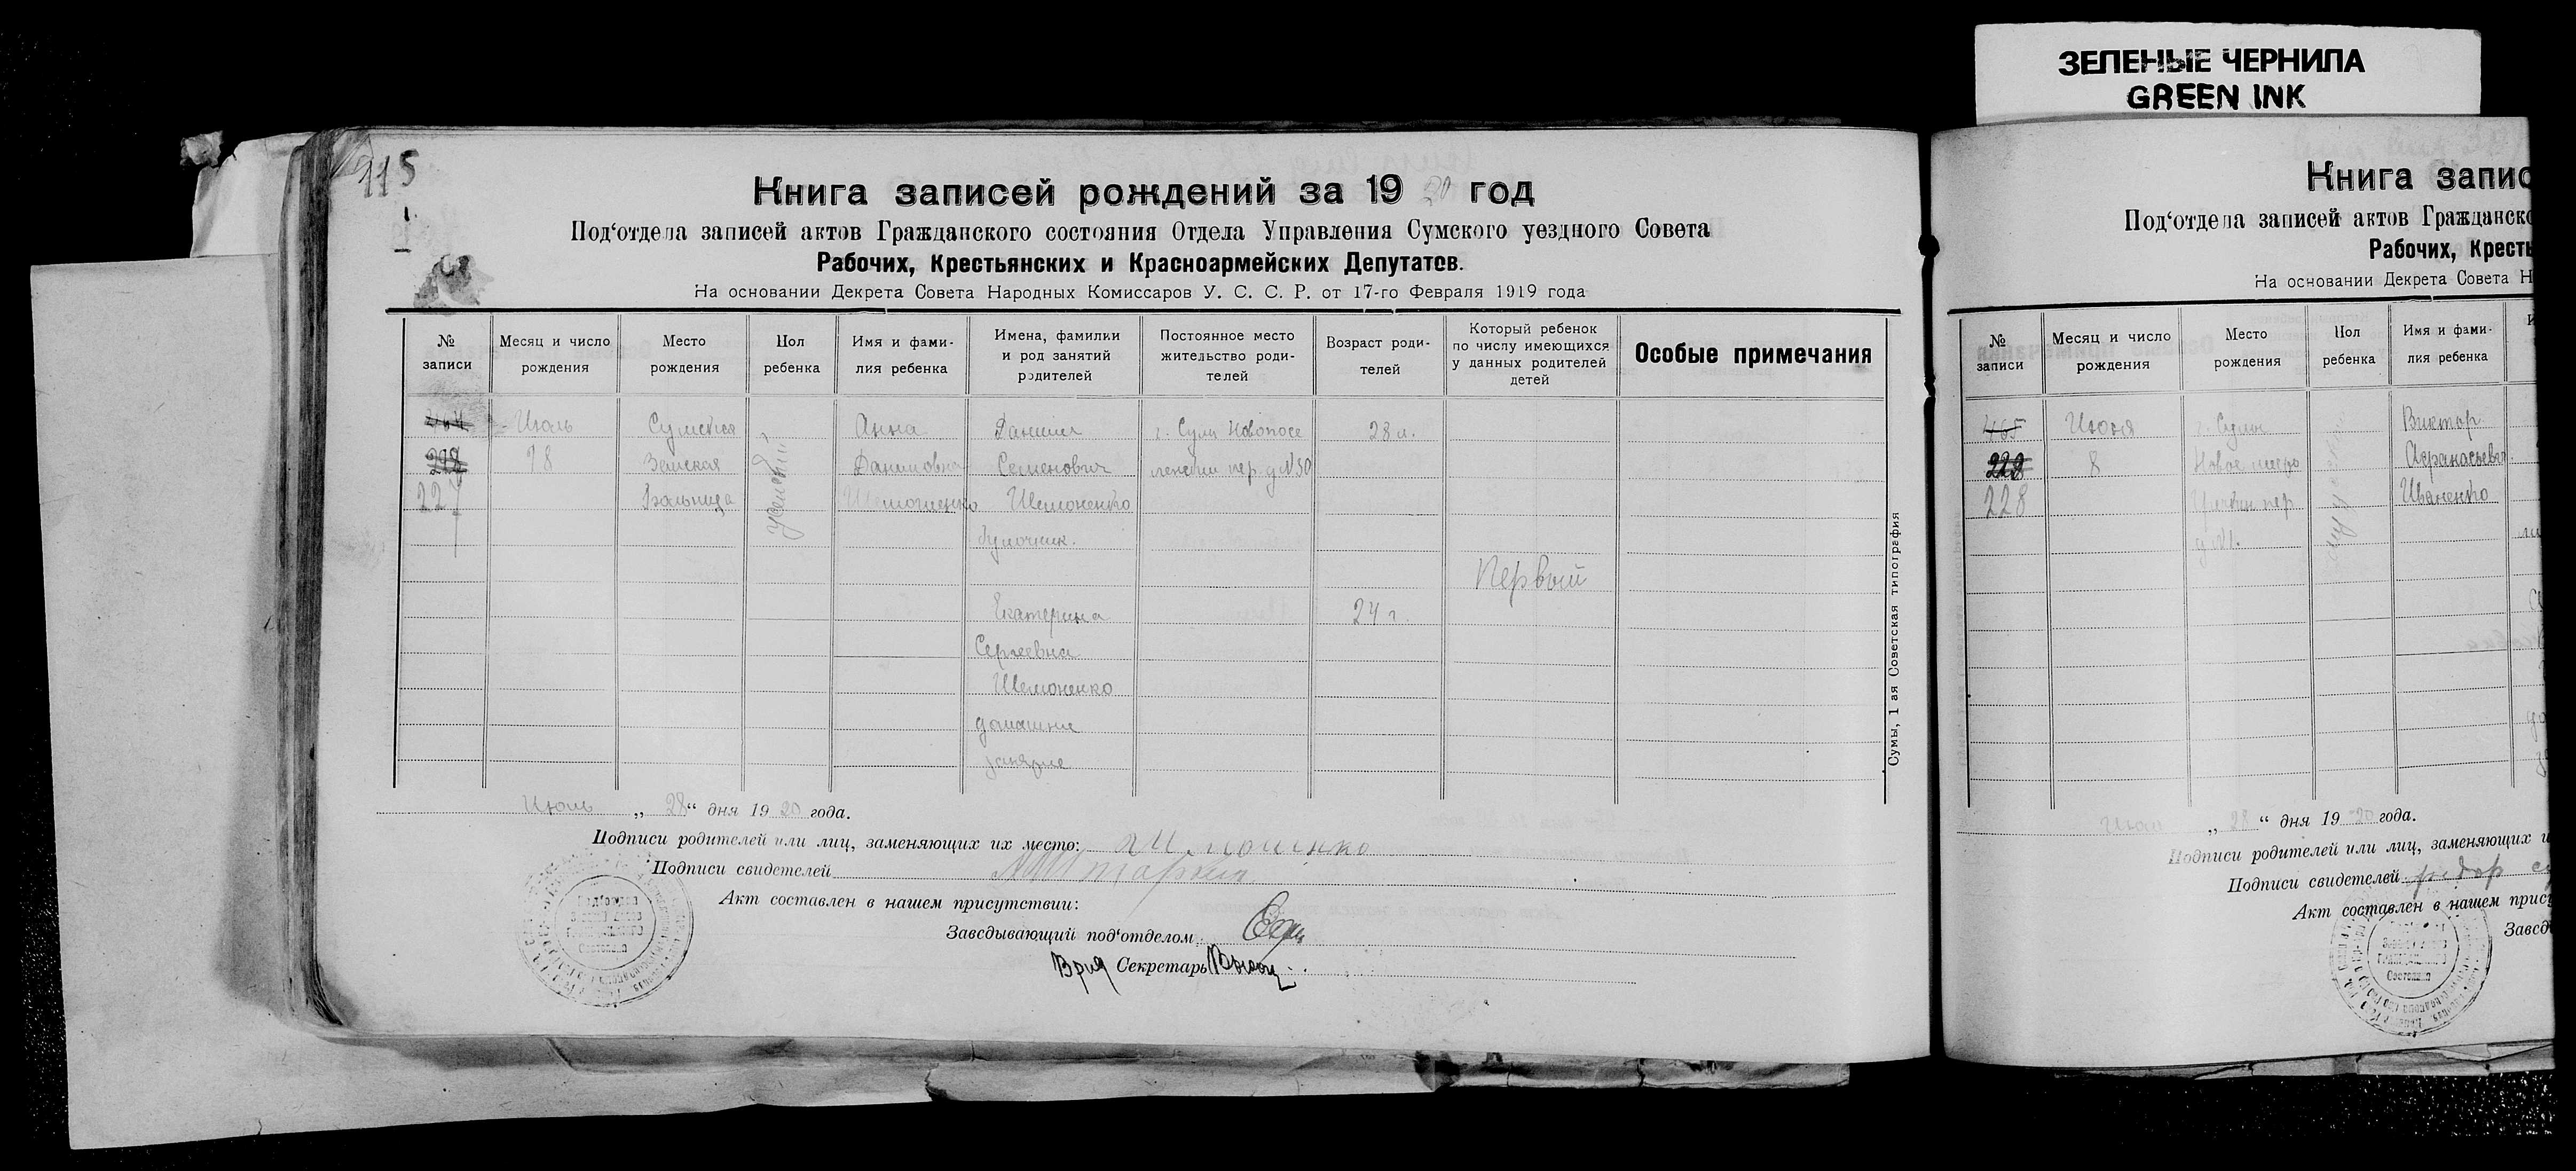 ЗЕЛЕНЫЕ ЧЕРНИЛА
GREEN INK
115
Книга записей рождений за 1920 год
Под‘отдела записей актов Гражданского состояния Отдела Управления Сумского уездного Совета
Рабочих, Крестьянских и Красноармейских Депутатов.
На основании Декрета Совета Народных Комиссаров У. С. С. Р. от 17-го Февраля 1919 года
№ записи
Месяц и число рождения
Место рождения
Пол ребенка
Имя и фами-
лия ребенка
Имена, фамилии
и род занятий
родителей
Постоянное место
жительство роди-
телей
Возраст роди-
телей
Который ребенок
по числу имеющихся
у данных родителей
детей
Особые примечания
227
Июль
18
Сумская
Земская
Больница
женский
Анна
Даниловна
Шемоненко
Даниил
Семенович
Шемоненко
булочник.
Екатерина
Сергеевна
Шемоненко
домашние
занятие
г. Сумы Новопосе
ленский пер. д №50
28 л.
24 г.
Первый
Сумы, 1 ая Советская типография
Июль „ 28 “ дня 1920 года.
Подписи родителей или лиц, заменяющих их место:
Подписи свидетелей
Акт составлен в нашем присутствии:
Заведывающий под‘отделом
Врид Секретарь
Под'отдел
Записи Актов
Гражданского
Состояния
Книга запис
Под‘отдела записей актов Гражданско
Рабочих, Кресть
На основании Декрета Совета Н
№ записи
Месяц и число рождения
Место рождения
Пол ребенка
Имя и фами-
лия ребенка
465
228
Июня
8
г. Сумы
Новое место
пер.
д №1.
Виктор
Афанасьевич
Иваненко
„ 28 “ дня 1920 года.
Подписи родителей или лиц, заменяющих и
Подписи свидетелей
Акт составлен в нашем прису
Завед